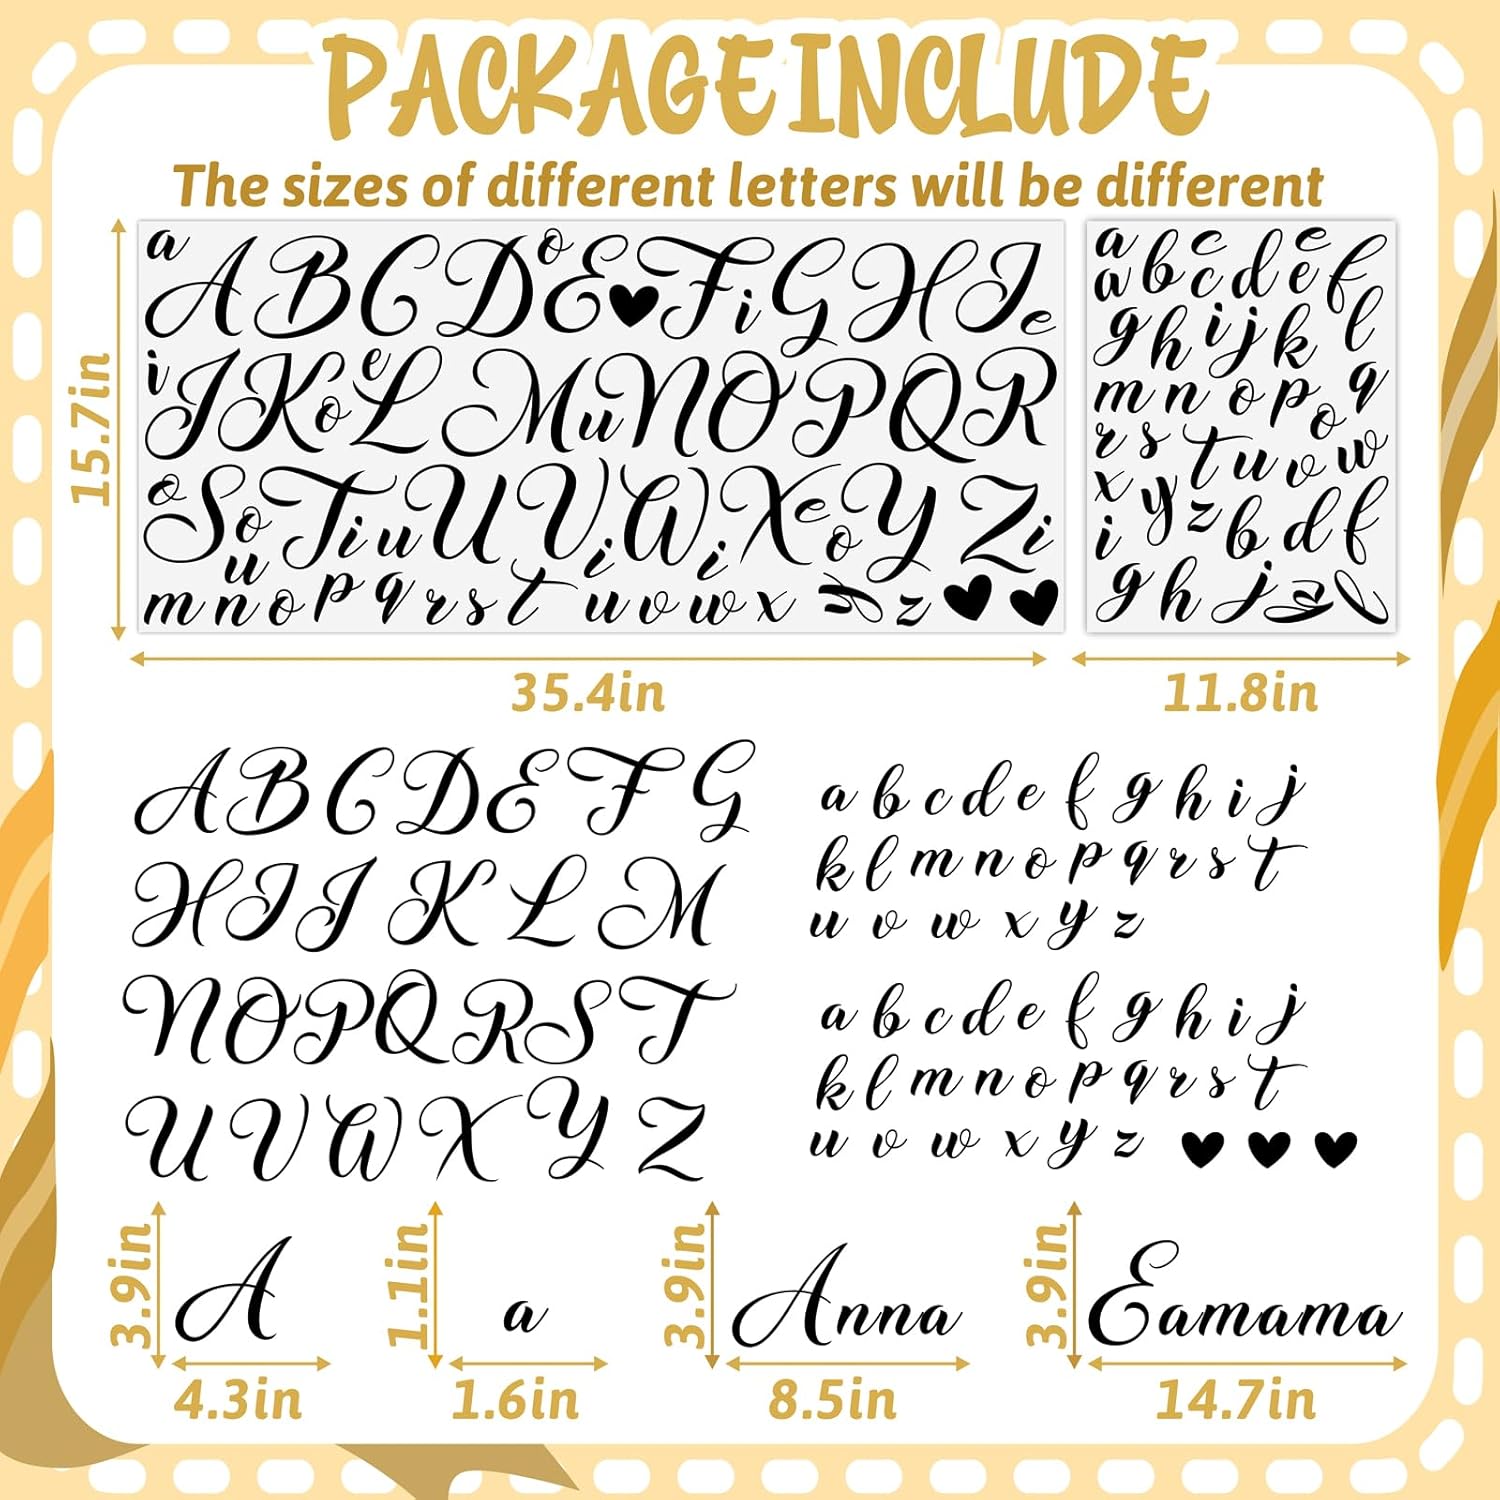 PACKAGE INCLUDE
The sizes of different letters will be different
a A B C D o E F i G H I e
i J K o e L M u N O P Q R
o S o u T i u U V i W i X e o Y Z i
m n o p q r s t u v w x y z
a b c e d e f
a c
g h i j k l
m n o p o q
r s t u v w
x y z b d f
i
g h j a l
15.7in
35.4in
11.8in
A B C D E F G
H I J K L M
N O P Q R S T
U V W X Y Z
a b c d e f g h i j
k l m n o p q r s t
u v w x y z
a b c d e f g h i j
k l m n o p q r s t
u v w x y z
3.9in
A
4.3in
1.1in
a
1.6in
3.9in
Anna
8.5in
3.9in
Eamama
14.7in